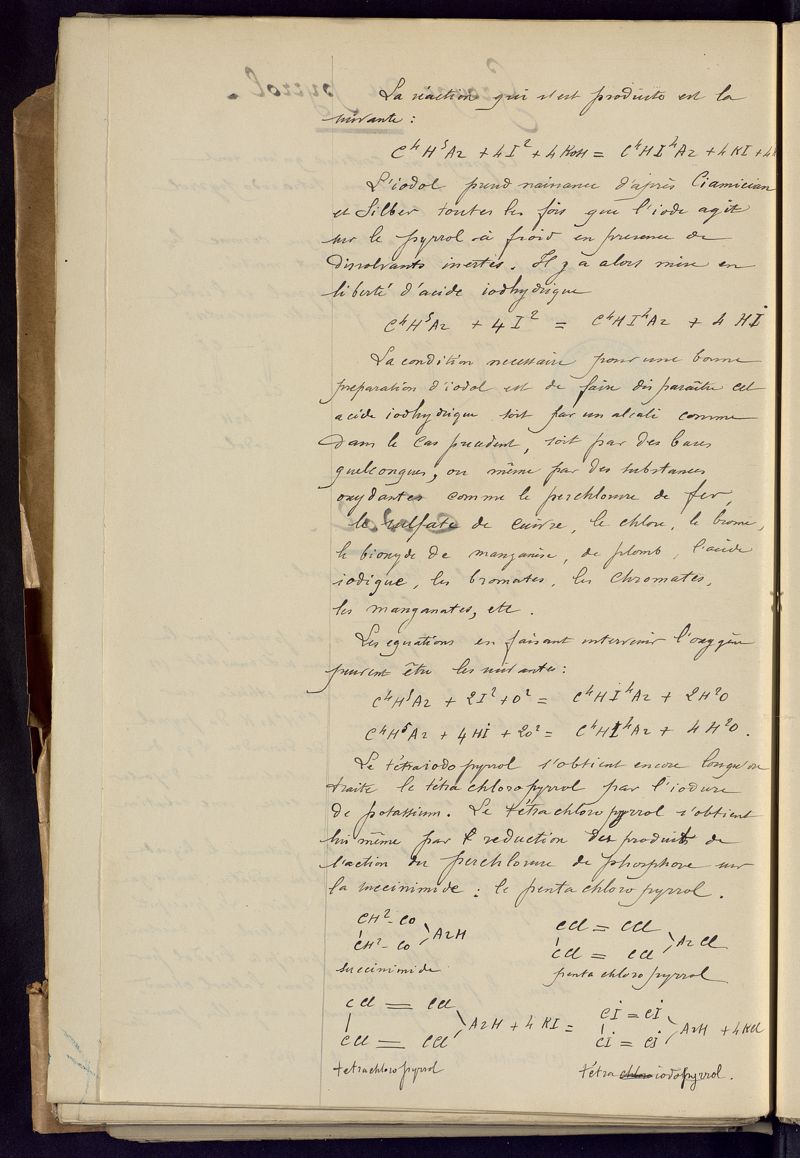 La réaction qui s'est produite est la
suivante :
C⁴H⁵Az + 4I² + 4KOH = C⁴HI⁴Az + 4KI + 4H
L'iodol prend naissance d'après Ciamician
et Silber toutes les fois que l'iode agit
sur le pyrrol à froid en presence de
dissolvants inertes. Il y a alors mise en
liberté d'acide iodhydrique
C⁴H⁵Az + 4I² = C⁴HI⁴Az + 4 HI
La condition necessaire pour une bonne
preparation d'iodol est de faire disparaître cet
acide iodhydrique soit par un alcali comme
dans le cas precedent, soit par des bases
quelconques, ou même par des substances
oxydantes comme le perchlorure de fer,
le sulfate de cuivre, le chlore, le brome,
le bioxyde de manganèse, de plomb, l'acide
iodique, les bromates, les chromates,
les manganates, etc.
Les equations en faisant intervenir l'oxygène
peuvent être les suivantes :
C⁴H⁵Az + 2I² + O² = C⁴HI⁴Az + 2H²O
C⁴H⁵Az + 4HI + 2O² = C⁴HI⁴Az + 4H²O.
Le tétraiodopyrrol s'obtient encore lorsqu'on
traite le tétrachloropyrrol par l'iodure
de potassium. Le tétrachloropyrrol s'obtient
lui même par reduction des produits de
l'action du perchlorure de phosphore sur
la succinimide : le pentachloropyrrol.
CH² - CO
CH² - CO > AzH
succinimide
CCl = CCl
CCl = CCl > AzCl
pentachloropyrrol
CCl = CCl
CCl = CCl > AzH + 4KI = CI = CI
CI = CI > AzH + 4KCl
tetrachloropyrrol
tétra chloro iodopyrrol.